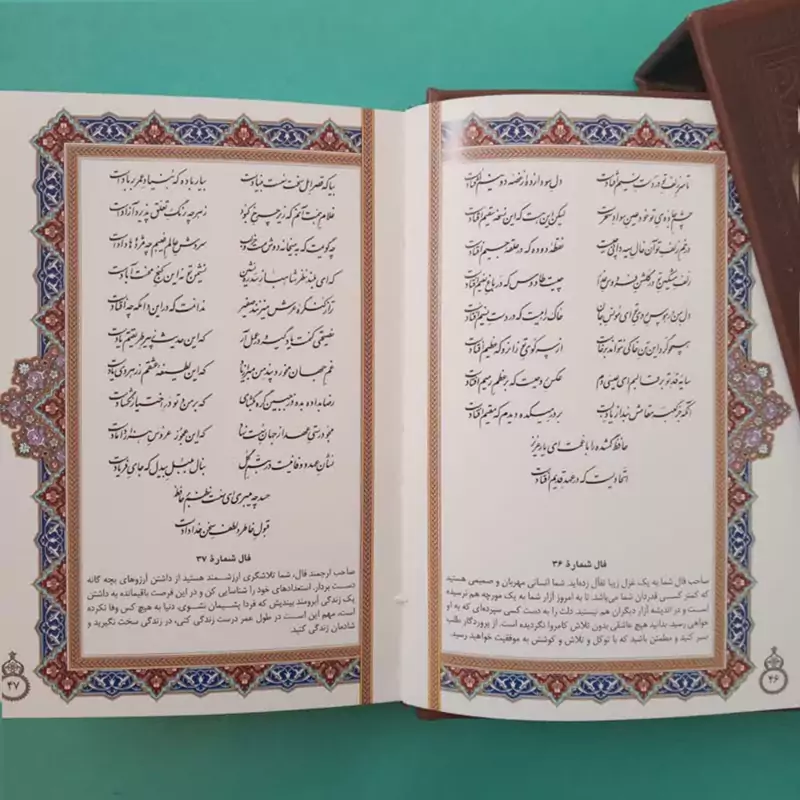 تا سر زلف تو در دست نسیم افتادست دل سودازده از غصه دو نیم افتادست
چشم جادوی تو خود عین سواد سحرست لیکن این هست که این نسخه سقیم افتادست
در خم زلف تو آن خال سیه دانی چیست نقطه دوده که در حلقه جیم افتادست
زلف مشکین تو در گلشن فردوس عذار چیست طاووس که در باغ نعیم افتادست
دل من در هوس روی تو ای مونس جان خاک راهیست که در دست نسیم افتادست
همچو گرد این تن خاکی نتواند برخاست از سر کوی تو زان رو که عظیم افتادست
سایه قد تو بر قالبم ای عیسی دم عکس روحیست که بر عظم رمیم افتادست
آنکه جز کعبه مقامش نبد از یاد لبت بر در میکده دیدم که مقیم افتادست
حافظ گمشده را با غمت ای یار عزیز
اتحادیست که در عهد قدیم افتادست
فال شمارهٔ ۳۶
صاحب فال شما به یک غزل زیبا تفأل زده‌اید. شما انسانی مهربان و صمیمی هستید
که کمتر کسی قدردان شما می‌باشد. تا به امروز آزار شما به یک مورچه هم نرسیده
است و در اندیشه آزار دیگران هم نیستید. دلت را به دست کسی سپرده‌ای که به او
خواهی رسید. بدانید هیچ عاشقی بدون تلاش کامروا نگردیده است. از پروردگار طلب
صبر کنید و مطمئن باشید که با توکل و تلاش و کوشش به موفقیت خواهید رسید.
۴۶
بیا که قصر امل سخت سست بنیادست بیار باده که بنیاد عمر بر بادست
غلام همت آنم که زیر چرخ کبود ز هر چه رنگ تعلق پذیرد آزادست
چه گویمت که به میخانه دوش مست و خراب سروش عالم غیبم چه مژده‌ها دادست
که ای بلند نظر شاهباز سدره نشین نشیمن تو نه این کنج محنت آبادست
ترا ز کنگره عرش می‌زنند صفیر ندانمت که در این دامگه چه افتادست
نصیحتی کنمت یاد گیر و در عمل آر که این حدیث ز پیر طریقتم یادست
غم جهان مخور و پند من مبر از یاد که این لطیفه عشقم ز رهروی یادست
رضا بداده بده وز جبین گره بگشای که بر من و تو در اختیار نگشادست
مجو درستی عهد از جهان سست نهاد که این عجوز عروس هزار دامادست
نشان عهد و وفا نیست در تبسم گل بنال بلبل بیدل که جای فریادست
حسد چه میبری ای سست نظم بر حافظ
قبول خاطر و لطف سخن خدادادست
فال شمارهٔ ۳۷
صاحب ارجمند فال، شما تلاشگری ارزشمند هستید از داشتن آرزوهای بچه گانه
دست بردار. استعدادهای خود را شناسایی کن و در این فرصت باقیمانده به داشتن
یک زندگی آبرومند بیندیش که فردا پشیمان نشوی، دنیا به هیچ کس وفا نکرده
است، مهم این است در طول عمر درست زندگی کنی، در زندگی سخت نگیرید و
شادمان زندگی کنید.
۴۷